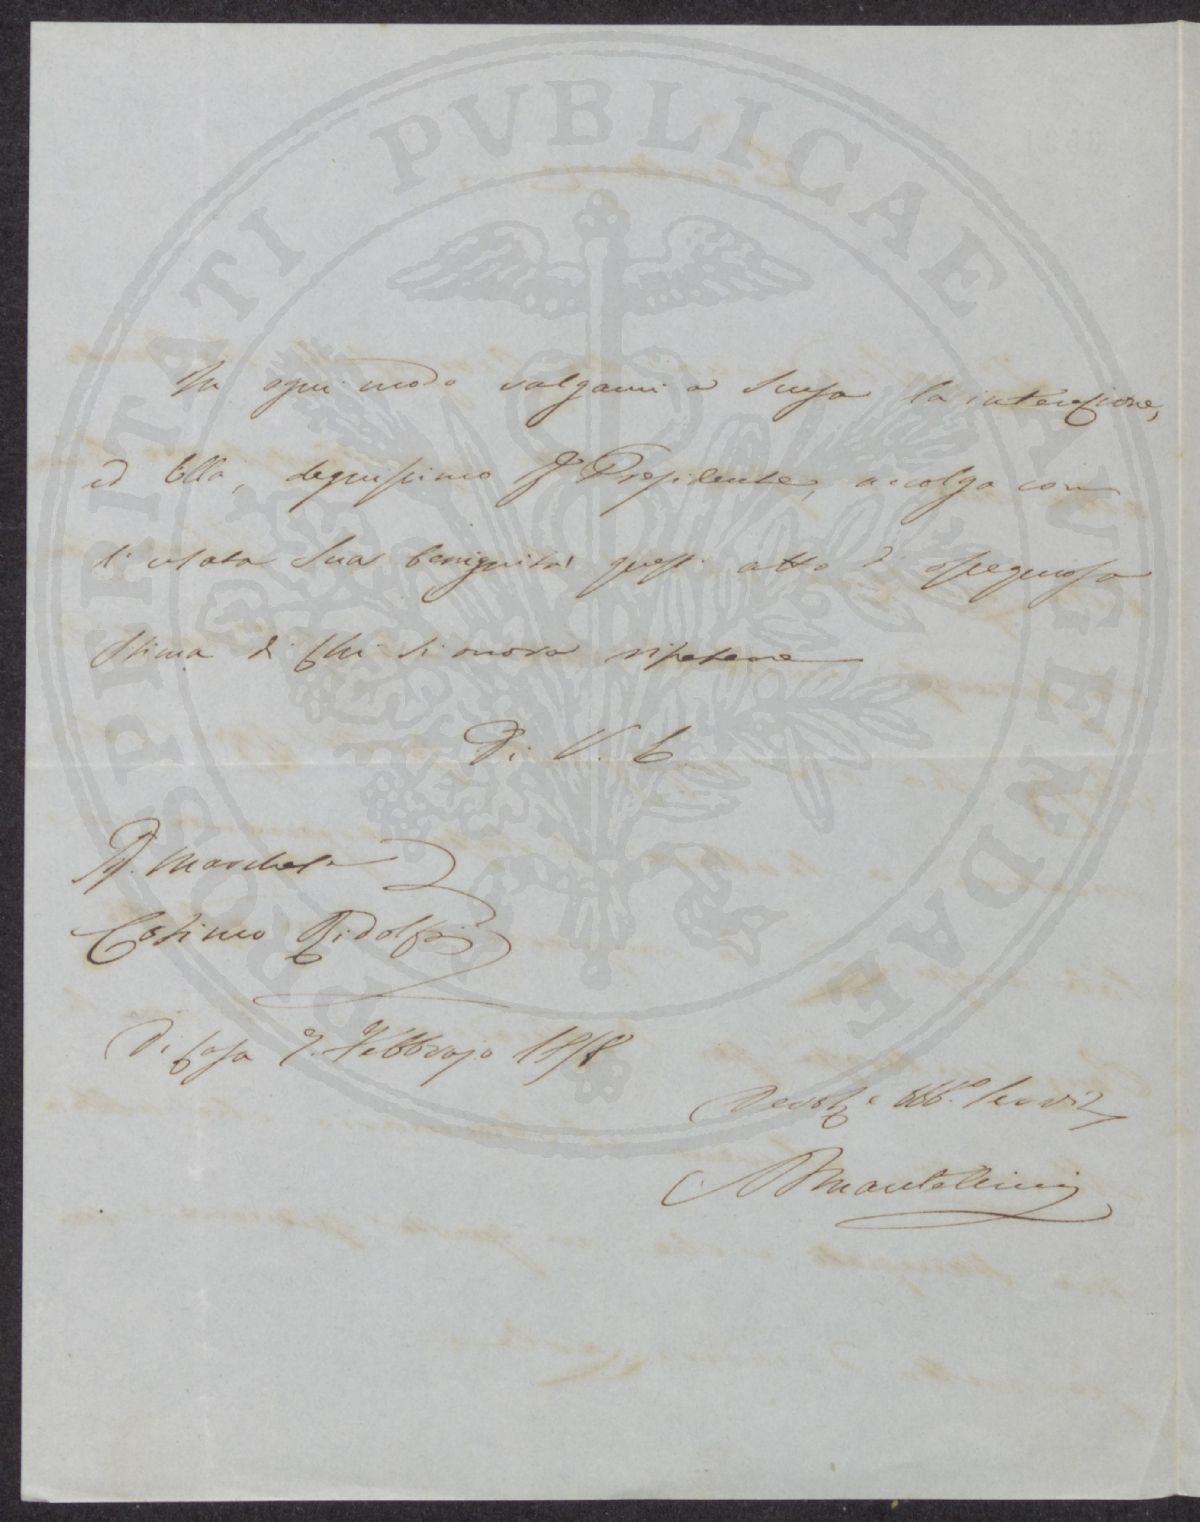 PROSPERITATI PVBLICAE AVGENDAE
In ogni modo valgami a scusa la intenzione,
ed Ella, degnissimo Sr Presidente, accolga con
l'usata Sua benignità quest' atto d' ossequiosa
stima di chi si onora ripetere
Di V. E.
Sr. Marchese
Cosimo Ridolfi
Di Casa 7. Febbrajo 1858
Devot e Obb.o Servit
Mantellini